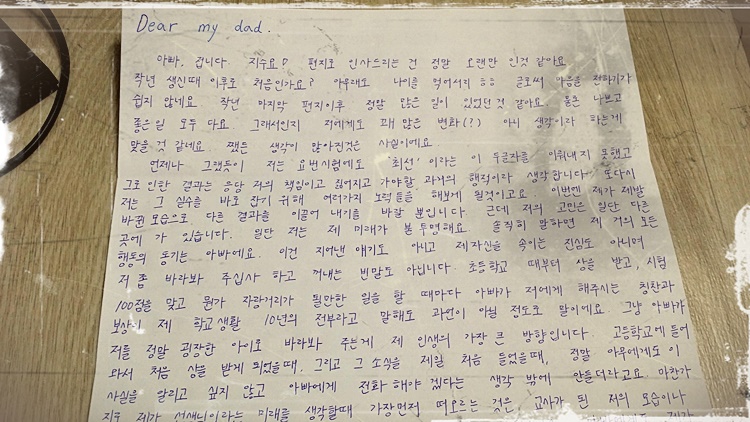 Dear my dad.
아빠, 접니다 지수요! 편지로 인사드리는 건 정말 오랜만 인것 같아요
작년 생신때 이후로 처음인가요? 아무래도 나이를 먹어서리 ㅎㅎ 글로써 마음을 전하기가
쉽지 않네요 작년 마지막 편지이후 정말 많은 일이 있었던 것 같아요 물론 나쁘고
좋은일 모두 다요. 그래서인지 저에게도 꽤 많은 변화(?) 아니 생각이라 하는게
맞을 것 같네요 쨌든 생각이 많아진것은 사실이에요
언제나 그랬듯이 저는 요번시험에도 '최선' 이라는 이 두글자를 이뤄내지 못했고
그로 인한 결과는 응당 저의 책임이고 짊어지고 가야할 과거의 행적이라 생각합니다! 또다시
저는 그 실수를 바로 잡기 위해 여러가지 노력들을 해보게 될것이고요 이번엔 제가 제발
바뀐 모습으로 다른 결과를 이끌어 내기를 바랄 뿐입니다 근데 저의 고민은 일단 다른
곳에 가 있습니다. 일단 저는 제 미래가 불투명해요 솔직히 말하면 제 거의 모든
행동의 동기는 아빠에요. 이건 지어낸 얘기도 아니고 제자신을 속이는 진심도 아니며
저 좀 바라봐 주십사 하고 꺼내는 빈말도 아닙니다. 초등학교 때부터 상을 받고, 시험
100점을 맞고 뭔가 자랑거리가 될만한 일을 할 때마다 아빠가 저에게 해주시는 칭찬과
보상이 제 학교생활 10년의 전부라고 말해도 과언이 아닐 정도로 말이에요. 그냥 아빠가
저를 정말 굉장한 아이로 바라봐 주는게 제 인생의 가장 큰 방향입니다. 고등학교에 들어
와서 처음 상을 받게 되었을때, 그리고 그 소식을 제일 처음 들었을때, 정말 아무에게도 이
사실을 알리고 싶지 않고 아빠에게 전화 해야 겠다는 생각 밖에 안들더라고요. 마찬가
지로 제가 선생님이라는 미래를 생각할때 가장먼저 떠오르는 것은 교사가 된 저의 모습이나